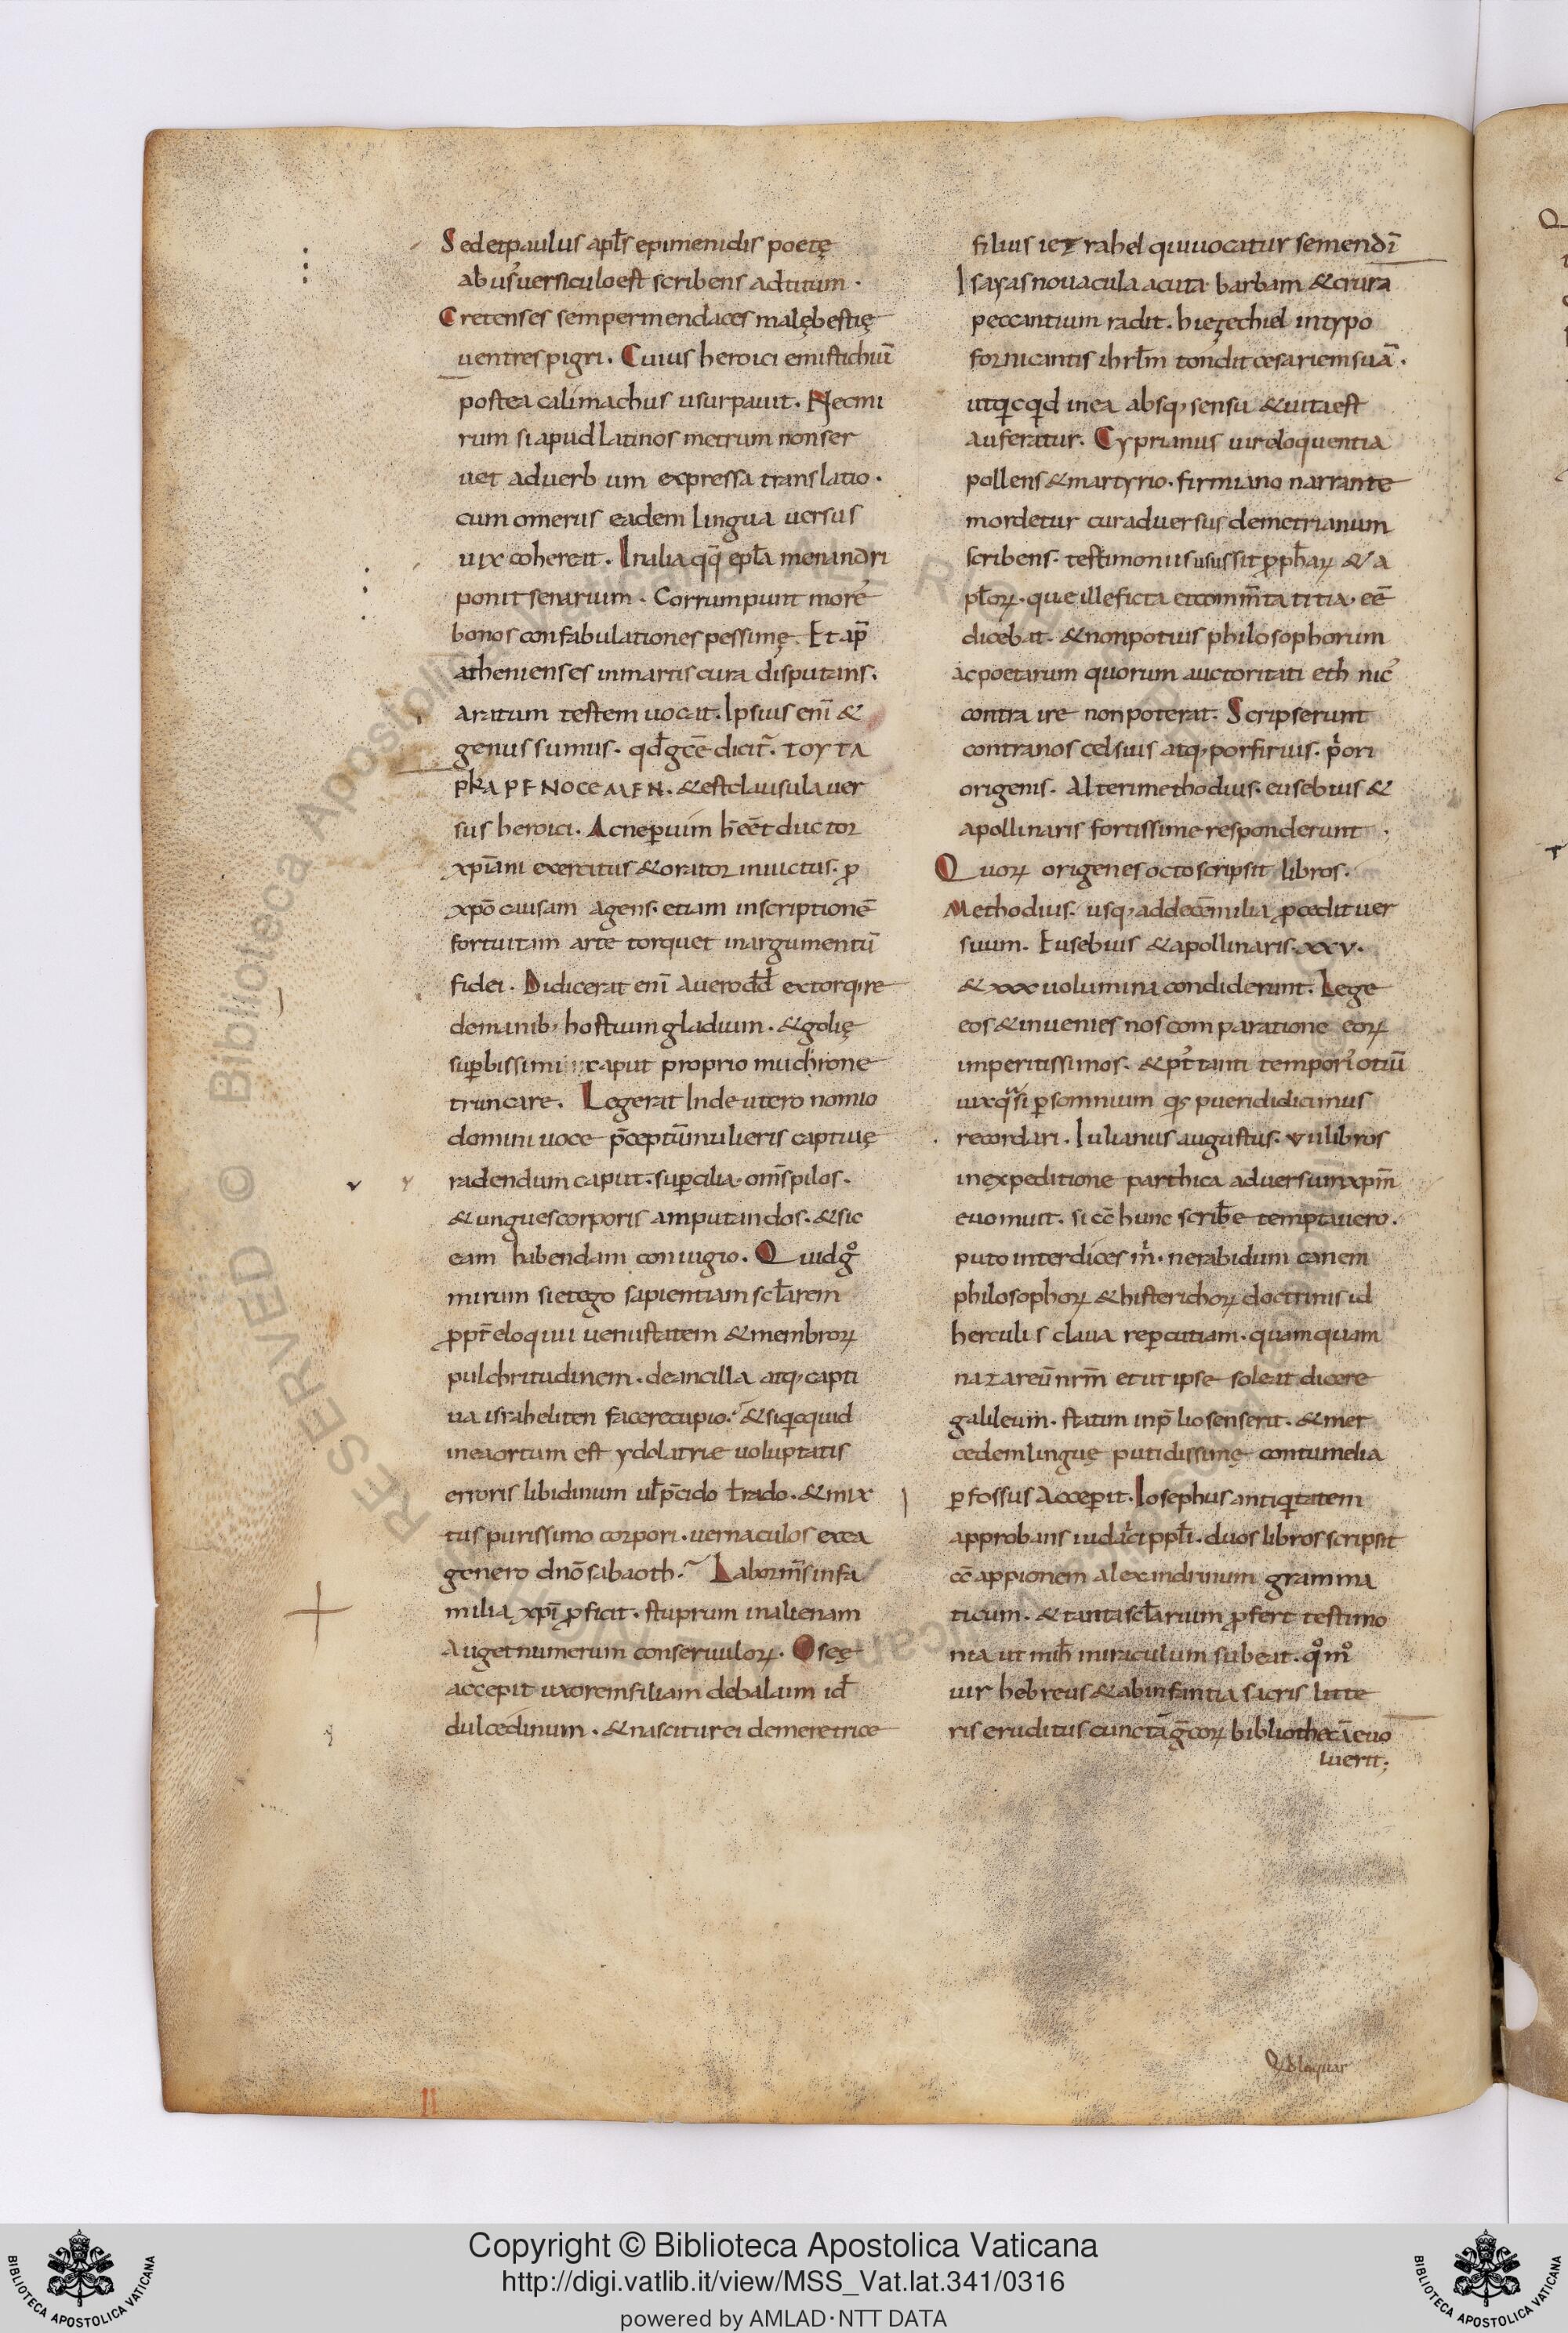 Sed et paulus apl̄s epimenidis poetę
abus᾽ uersiculo est scribens ad titum ·
Cretenses semper mendaces malę bestię
uentres pigri . Cuius heroici emistichiū
postea calimachus usurpauit . Nec mi
rum si apud latinos metrum non ser
uet ad uerbum expressa translatio ·
cum omerus eadem lingua uersus
uix cohereat . In alia qq̄ epła menandri
ponit senarium . Corrumpunt more᾽
bonos confabulationes pessimę . Et ap̄
athenienses in martis cura disputans .
aratum testem uocat . Ipsius enī &
genus sumus . qđ gcē dicit᾽ . ΤΟΥ ΤΑ
PKA PFNOCEMFN . & est clausula uer
sus heroici . Ac ne ꝑuim h̄ eēt ductor
xp̄iani exercitus & orator inuictus . ꝓ
xp̄o causam agens . etiam inscriptionē
fortuitam arte torquet in argumentū
fidei . Didicerat enī a uero dd̄ extorq᾽re
de manib᾽ hostium gladium . & golię
suꝑbissimi caput proprio muchrone
truncare . Legerat In deuteronomio
domini uoce p̄ceptū mulieris captiuę
radendum caput . suꝑcilia . om̄s pilos .
& ungues corporis amputandos . & sic
eam habendam coniugio . Quid gͦ
mirum si et ego sapientiam scl̄arem
ꝓpt̄ eloquii uenustatem & membroꝝ
pulchritudinem . de ancilla atq᾽ capti
ua israheliten facere cupio . & si qicquid
in ea ortum est ydolatriæ uoluptatis
erroris libidinum ul̄ p̄cido ł rado . & mix
tus purissimo corpori . uernaculos ex ea
genero dn̄o sabaoth . Labor m̄s in fa
milia xp̄i ꝓficit . stuprum in alienam
auget numerum conseruuloꝝ . Oseę
accepit uxorem filiam debalaim id̄
dulcedinum . & nascitur ei de meretrice
filius iezrahel qui uocatur semen dī
Isayas nouacula acuta barbam & crura
peccantium radit . hiezechiel in typo
fornicantis ihrl̄m tondit cesariem suā .
ut qicqid in ea absq᾽ sensu & uita est
auferatur . Cyprianus uir eloquentia
pollens & martyrio . firmiano narrante
mordetur cur aduersus demetrianum
scribens . testimoniis usus sit ꝓph̄aꝝ & a
pl̄oꝝ . que ille ficta et comm̄ta titia᾽ eē
dicebat . & non potuis philosophorum
ac poetarum quorum auctoritati eth nic᾽
contra ire non poterat . Scripserunt
contra nos celsius atq᾽ porfirius . p̓ori
origenis . Alteri methodius . eusebius &
apollinaris fortissime responderunt .
Quoꝝ origenes octo scripsit libros .
Methodius . usq᾽ ad decē milia ꝓcedit uer
suum . Eusebius & apollinaris . xxv .
& xxx uolumina condiderunt . Lege
eos & inuenies nos comparatione eoꝝ
imperitissimos . & p᾽t tanti tempor᾽ otiū
uix qasi ꝑ somnium qͦ pueri didicimus
recordari . Iulianus augustus . vii libros
in expeditione parthica aduersum xpm̄
euomuit . si cc̄ hunc scribe temptauero .
puto interdices m̓ . ne rabidum canem
philosophoꝝ & histerichoꝝ doctrinis id
herculis claua reꝑcutiam . quamquam
nazareū nrm̄ et ut ipse solebat dicere
galileum . statim in p̄lio senserit . & mer
cedem linguę putidissimę contumelia
ꝑfossus acceꝑit . Iosephus antiqitatem
approbans iudaici ppl̄i . duos libros scripsit
cc̄ appionem alexandrinum gramma
ticum . & tanta scl̄arium ꝓfert testimo
nia ut mihi miraculum subeat . qͦmͦ
uir hebreus & ab infantia sacris litte
ris eruditus cunctā gcoꝝ bibliothecā euo
luerit ;
Qd loquar
II
Copyright © Biblioteca Apostolica Vaticana
http://digi.vatlib.it/view/MSS_Vat.lat.341/0316
powered by AMLAD·NTT DATA